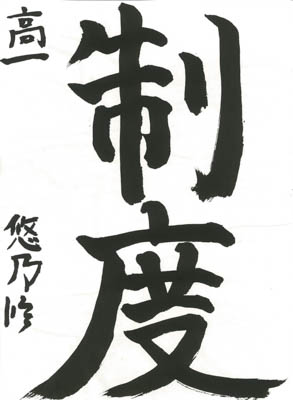 制度
高一
悠乃修